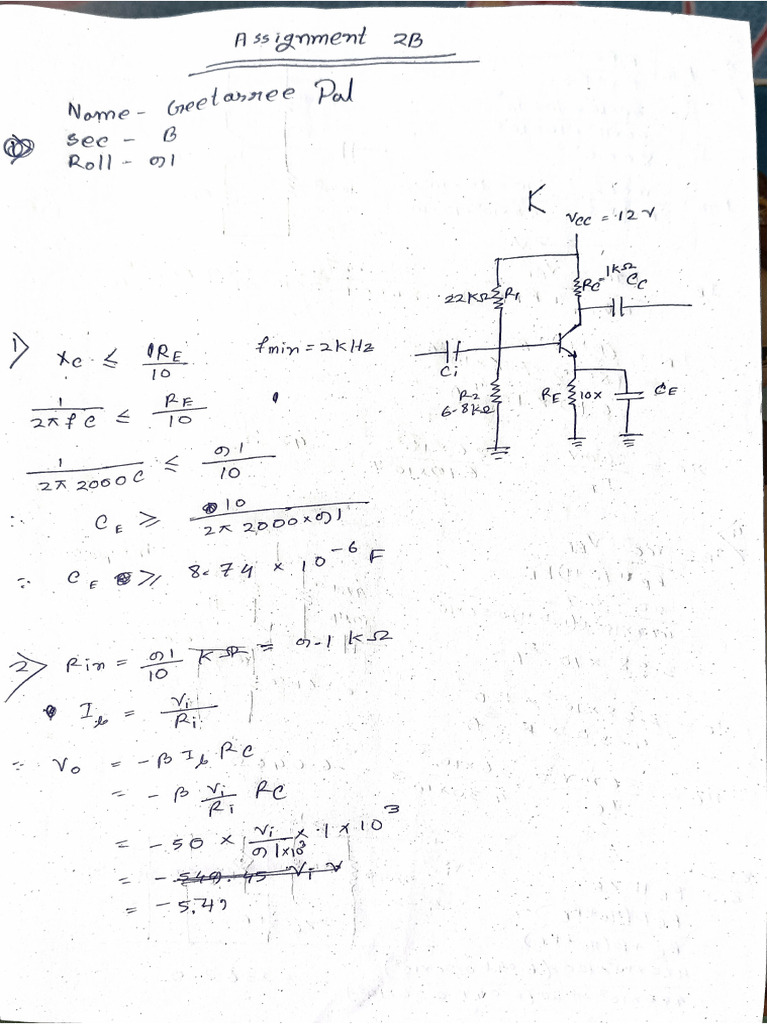 Assignment 2B
Name - Geetasree Pal
Sec - B
Roll - 91
K
Vcc = 12 V
22KΩ R1
RC 1KΩ
Cc
Ci
R2
6.8kΩ
RE 10x
CE
1) Xc ≤ RE/10 fmin = 2KHz
1/2πfC ≤ RE/10
1/2π 2000C ≤ 91/10
∴ CE ≥ 10/2π 2000×91
∴ CE ≥ 8.74 × 10^-6 F
2) Rin = 91/10 KΩ = 9.1 KΩ
Ib = Vi/Ri
∴ Vo = -β Ib RC
= -β Vi/Ri RC
= -50 × Vi/91×10^3 × 1 × 10^3
= -549.45 Vi V
= -5.49